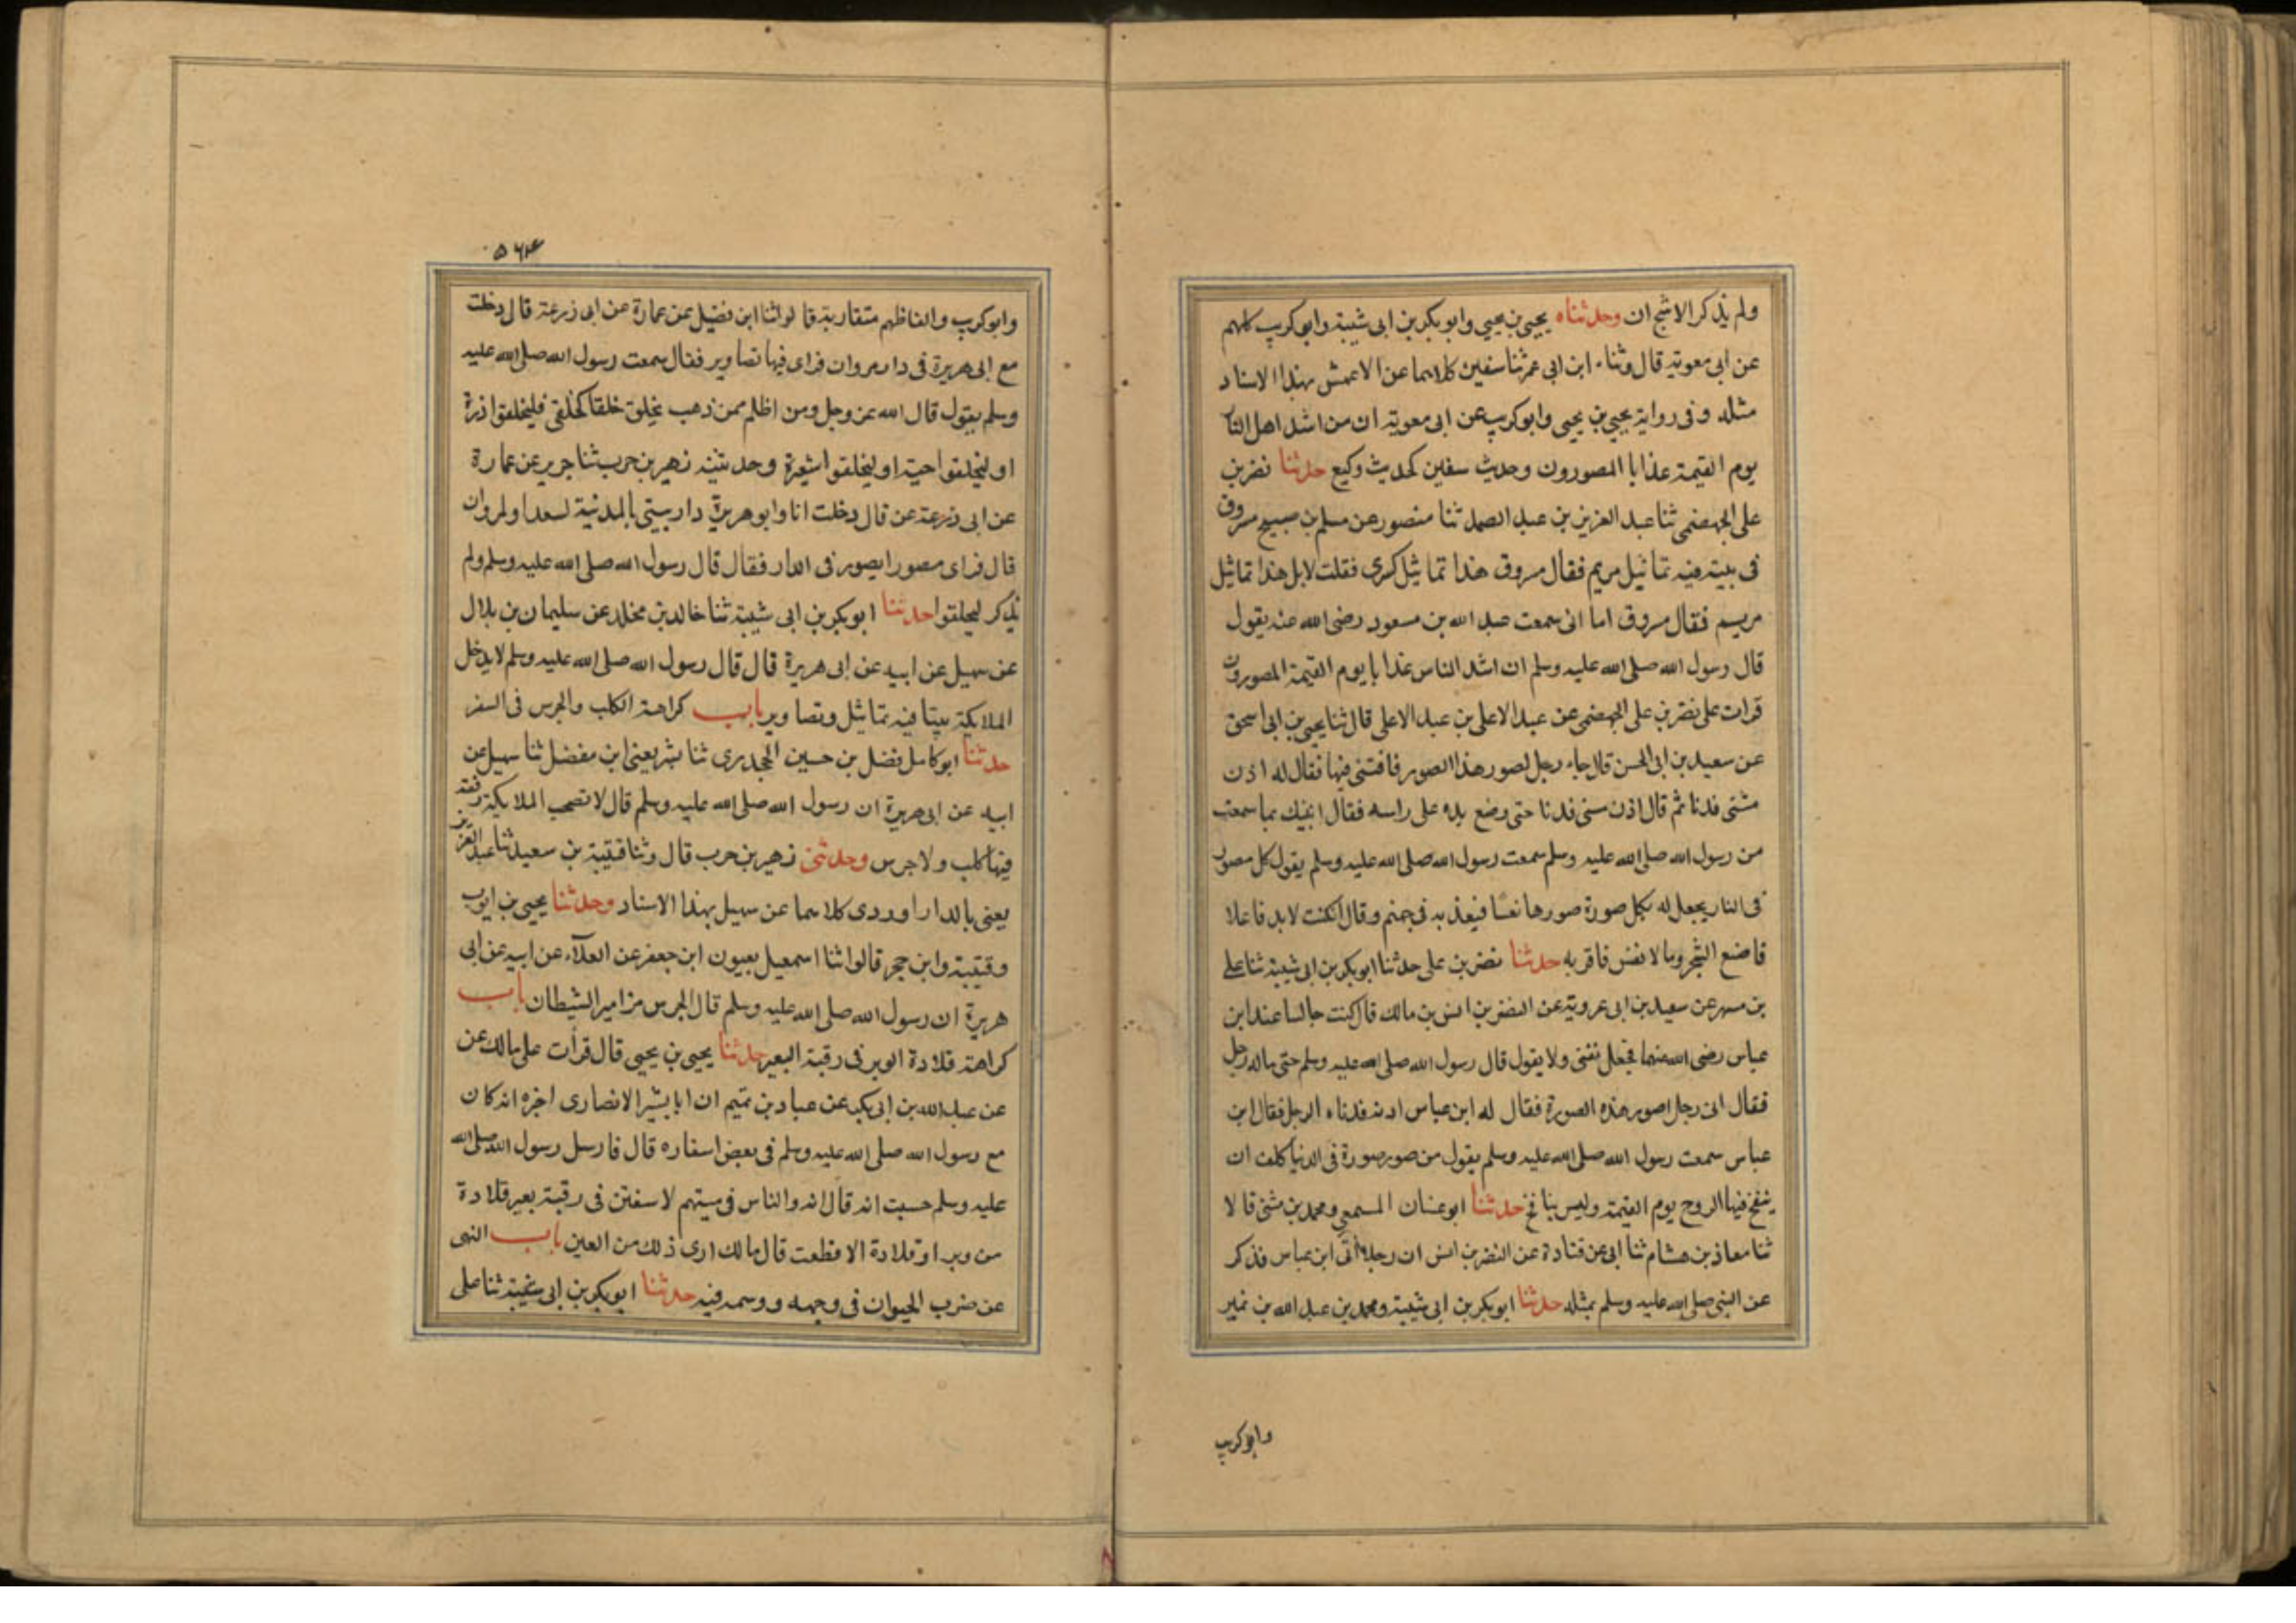 ولم يذكر الاشج ان وحدثناه يحيى بن يحيى وابو بكر بن ابى شيبة وابو كريب كلهم
عن ابى معوية قال وثناء ابن ابى عمر ثنا سفين كلاهما عن الاعمش بهذا الاسناد
مثله وفى رواية يحيى بن يحيى وابو كريب عن ابى معوية ان من اشد اهل النا
يوم القيمة عذابا المصورون وحديث سفين كحديث وكيع حدثنا نضر بن
على الجهضمى ثنا عبد العزيز بن عبد الصمد ثنا منصور عن مسلم بن صبيح مسروق
فى بيته فيه تماثيل مريم فقال مسروق هذا تماثيل كسرى فقلت لا بل هذا تماثيل
مريم فقال مسروق اما انى سمعت عبد الله بن مسعود رضى الله عنه يقول
قال رسول الله صلى الله عليه وسلم ان اشد الناس عذابا يوم القيمة المصورون
قرات على نضر بن على الجهضمى عن عبد الاعلى بن عبد الاعلى قال ثنا يحيى بن ابى اسحق
عن سعيد بن ابى الحسن قال جاء رجل لصور هذا الصور فافتنى فيها فقال له اذن
منى فدنا ثم قال اذن منى فدنا حتى وضع يده على راسه فقال انبئك بما سمعت
من رسول الله صلى الله عليه وسلم سمعت رسول الله صلى الله عليه وسلم يقول كل مصور
فى النار يجعل له بكل صورة صورها نفسا فيعذبه فى جهنم وقال ان كنت لا بد فاعلا
فاضع الشجر وما لا نفس فاقر به حدثنا نضر بن على حدثنا ابو بكر بن ابى شيبة ثنا على
بن مسهر عن سعيد بن ابى عروبة عن النضر بن انس بن مالك قال كنت جالسا عند ابن
عباس رضى الله عنهما فجعل يفتى ولا يقول قال رسول الله صلى الله عليه وسلم حتى ساله رجل
فقال انى رجل اصور هذه الصورة فقال له ابن عباس ادنه فدناه الرجل فقال ابن
عباس سمعت رسول الله صلى الله عليه وسلم يقول من صور صورة فى الدنيا كلف ان
ينفخ فيها الروح يوم القيمة وليس بنافخ حدثنا ابو غسان المسمعى ومحمد بن مثنى قالا
ثنا معاذ بن هشام ثنا ابى عن قتادة عن النضر بن انس ان رجلا اتى ابن عباس فذكر
عن النبى صلى الله عليه وسلم بمثله حدثنا ابو بكر بن ابى شيبة ومحمد بن عبد الله بن نمير
وابو كريب
۵۶۴
وابو كريب والفاظهم متقاربة قالوا ثنا ابن فضيل عن عمارة عن ابى زرعة قال دخلت
مع ابى هريرة فى دار مروان فراى فيها تصاوير فقال سمعت رسول الله صلى الله عليه
وسلم يقول قال الله عز وجل ومن اظلم ممن ذهب يخلق خلقا كخلقى فليخلقوا ذرة
او ليخلقوا حبة او ليخلقوا شعيرة وحدثنيه زهير بن حرب ثنا جرير عن عمارة
عن ابى زرعة عن قال دخلت انا وابو هريرة دار يبتى بالمدينة لسعد او لمروان
قال فراى مصورا يصور فى الدار فقال قال رسول الله صلى الله عليه وسلم ولم
يذكر ليخلقوا حدثنا ابو بكر بن ابى شيبة ثنا خالد بن مخلد عن سليمان بن بلال
عن سهيل عن ابيه عن ابى هريرة قال قال رسول الله صلى الله عليه وسلم لا يدخل
الملايكة بيتا فيه تماثيل وتصاوير باب كراهة الكلب والجرس فى السفر
حدثنا ابو كامل فضل بن حسين الجحدرى ثنا بشر يعنى ابن مفضل ثنا سهيل عن
ابيه عن ابى هريرة ان رسول الله صلى الله عليه وسلم قال لا تصحب الملايكة رفقة
فيها كلب ولا جرس وحدثنى زهير بن حرب قال وثنا قتيبة بن سعيد ثنا عبد العزيز
يعنى بالداراوردى كلاهما عن سهيل بهذا الاسناد وحدثنا يحيى بن ايوب
وقتيبة وابن حجر قالوا ثنا اسمعيل يعيون ابن جعفر عن العلآء عن ابيه عن ابى
هريرة ان رسول الله صلى الله عليه وسلم قال الجرس مزامير الشيطان باب
كراهة قلادة الوبر فى رقبة البعير حدثنا يحيى بن يحيى قال قرأت على مالك عن
عن عبد الله بن ابى بكر عن عباد بن تميم ان ابا بشير الانصارى اخبره انه كان
مع رسول الله صلى الله عليه وسلم فى بعض اسفاره قال فارسل رسول الله صلى الله
عليه وسلم حسبت انه قال انه والناس فى مبيتهم لا سفتن فى رقبة بعير قلادة
من وبر او قلادة الا قطعت قال مالك ارى ذلك من العين باب النهى
عن ضرب الحيوان فى وجهه ووسمه فيه حدثنا ابو بكر بن ابى شيبة ثنا على